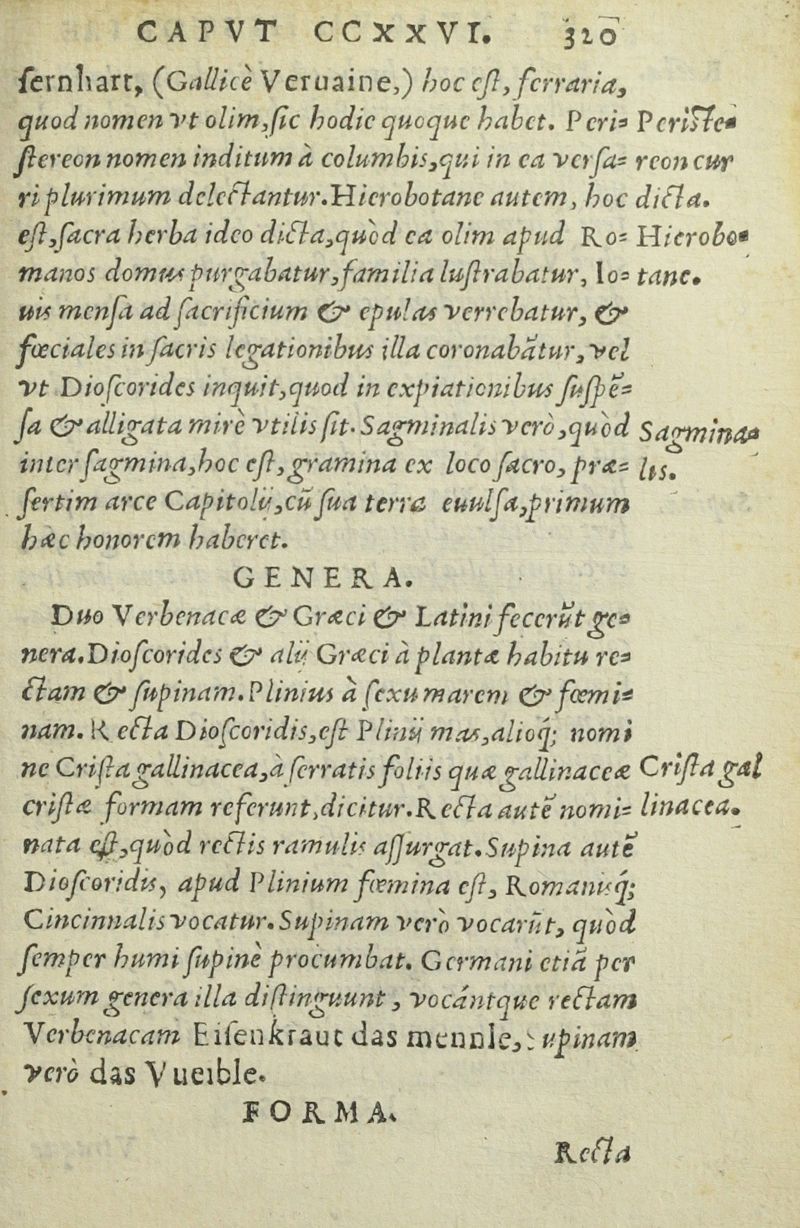 CAPVT CCXXVI. 320
ſernhart, (Gallicè Veruaine,) hoc eſt, ferraria,
quod nomen vt olim, ſic hodie quoque habet. Peri-
ſtereon nomen inditum à columbis, qui in ea verſa-
ri plurimum delectantur. Hierobotane autem, hoc
eſt, ſacra herba ideo dicta, quòd ea olim apud Ro-
manos domus purgabatur, familia luſtrabatur, Io-
uis menſa ad ſacrificium & epulas verrebatur, &
fœciales in ſacris legationibus illa coronabãtur, vel
vt Dioſcorides inquit, quod in expiationibus ſuſpẽ-
ſa & alligata mirè vtilis ſit. Sagminalis verò, quòd
inter ſagmina, hoc eſt, gramina ex loco ſacro, præ-
ſertim arce Capitolij, cũ ſua terra euulſa, primum
hæc honorem haberet.
Periſte-
reon cur
dicta.
Hierobo-
tane.
Sagmina-
lis.
GENERA.
Duo Verbenacæ & Græci & Latini fecerũt ge-
nera. Dioſcorides & alij Græci à plantæ habitu re-
ctam & ſupinam. Plinius à ſexu marem & fœmi-
nam. Recta Dioſcoridis, eſt Plinij mas, alioq́; nomi
ne Criſta gallinacea, à ſerratis foliis quæ gallinaceæ
criſtæ formam referunt, dicitur. Recta autẽ nomi-
nata eſt, quòd rectis ramulis aſſurgat. Supina autẽ
Dioſcoridis, apud Plinium fœmina eſt, Romanisq́;
Cincinnalis vocatur. Supinam verò vocarũt, quòd
ſemper humi ſupinè procumbat. Germani etiã per
ſexum genera illa diſtinguunt, vocántque rectam
Verbenacam Eiſenkraut das mennle, ſupinam
verò das Vueible.
Criſta gal
linacea.
FORMA.
Recta